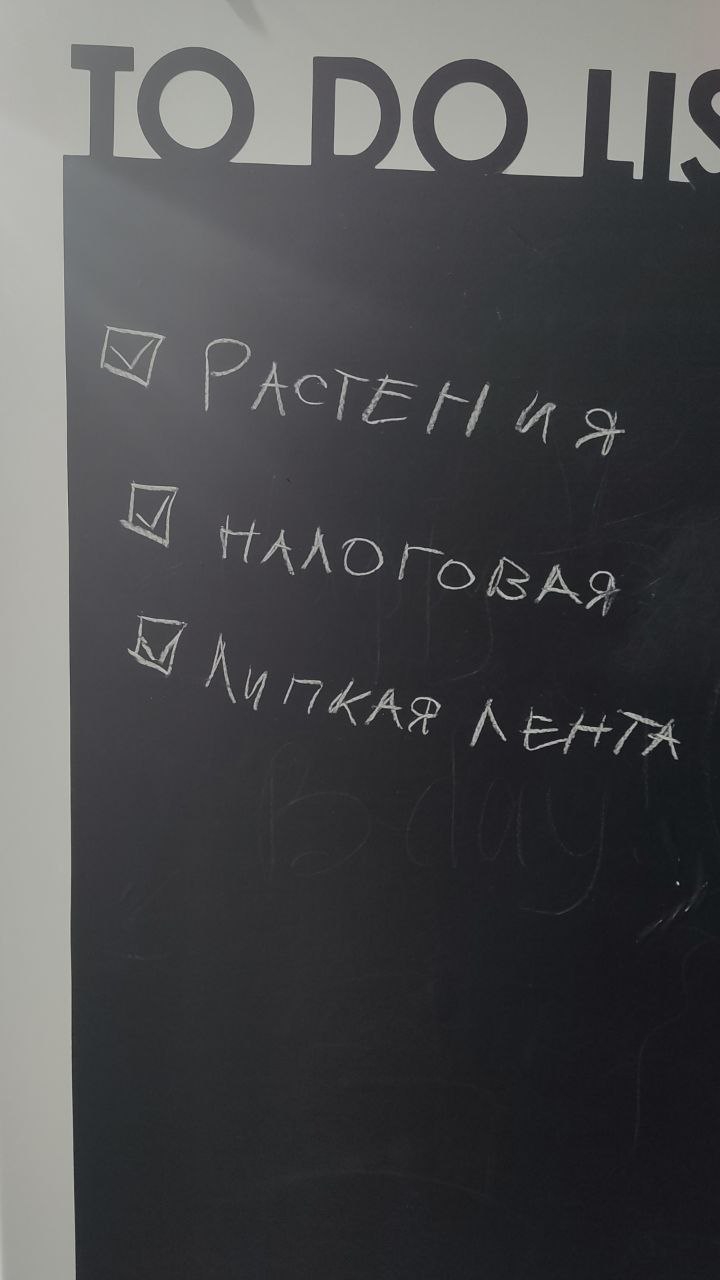 TO DO LIS
☑ РАСТЕНИЯ
☑ НАЛОГОВАЯ
☑ ЛИПКАЯ ЛЕНТА
B-day!